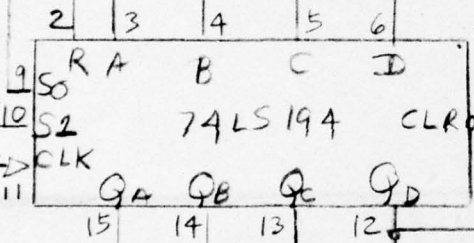 2 3 4 5 6
R A B C D
9 S0
10 S1 74LS194 CLR
CLK
11 QA QB QC QD
15 14 13 12